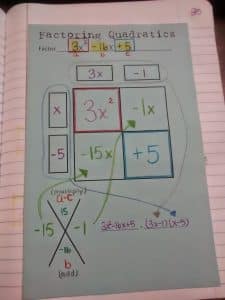 Factoring Quadratics
Factor 3x² -16x +5
a b c
3x -1
x 3x² -1x
-5 -15x +5
(multiply)
a·c
15
-15 -1
-16
b
(add)
3x²-16x+5 = (3x-1)(x-5)